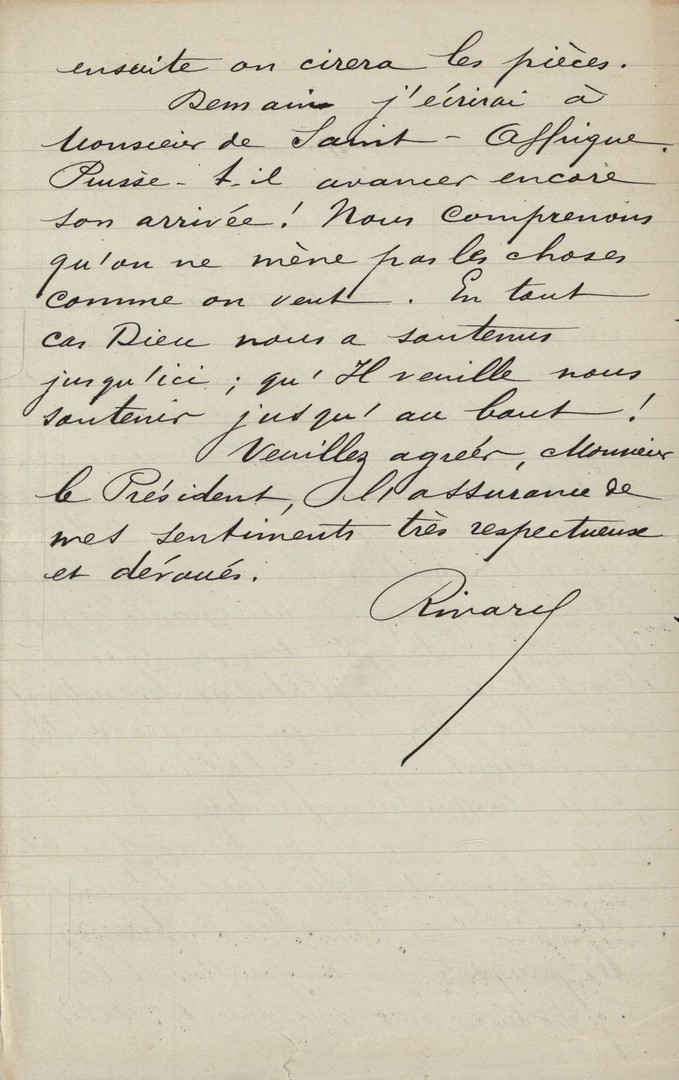 ensuite on cirera les pièces.
Demain j'écrirai à
Monsieur de Saint-Affrique.
Puisse-t-il avancer encore
son arrivée! Nous comprenons
qu'on ne mène pas les choses
comme on veut. En tout
cas Dieu nous a soutenus
jusqu'ici; qu'Il veuille nous
soutenir jusqu'au bout!
Veuillez agréer, Monsieur
le Président, l'assurance de
mes sentiments très respectueux
et dévoués.